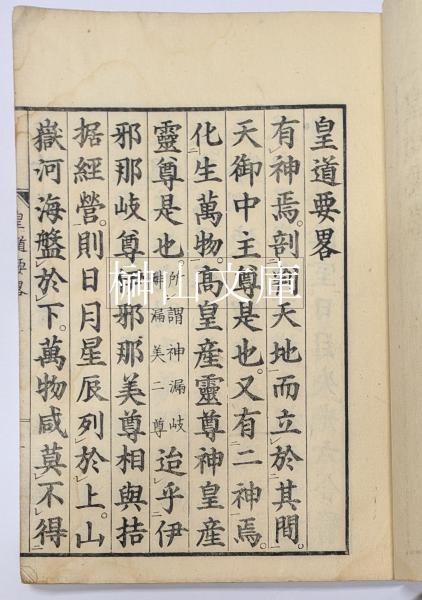 皇道要畧
有神焉。剖天地而立於其間。
天御中主尊是也。又有二神焉。
化生萬物。高皇產靈尊神皇產
靈尊是也
所謂神漏岐
神漏美二尊
迨乎伊
邪那岐尊伊邪那美尊相與拮
据經營。則日月星辰列於上。山
嶽河海盤於下。萬物咸莫不得
皇道要畧
榊山文庫